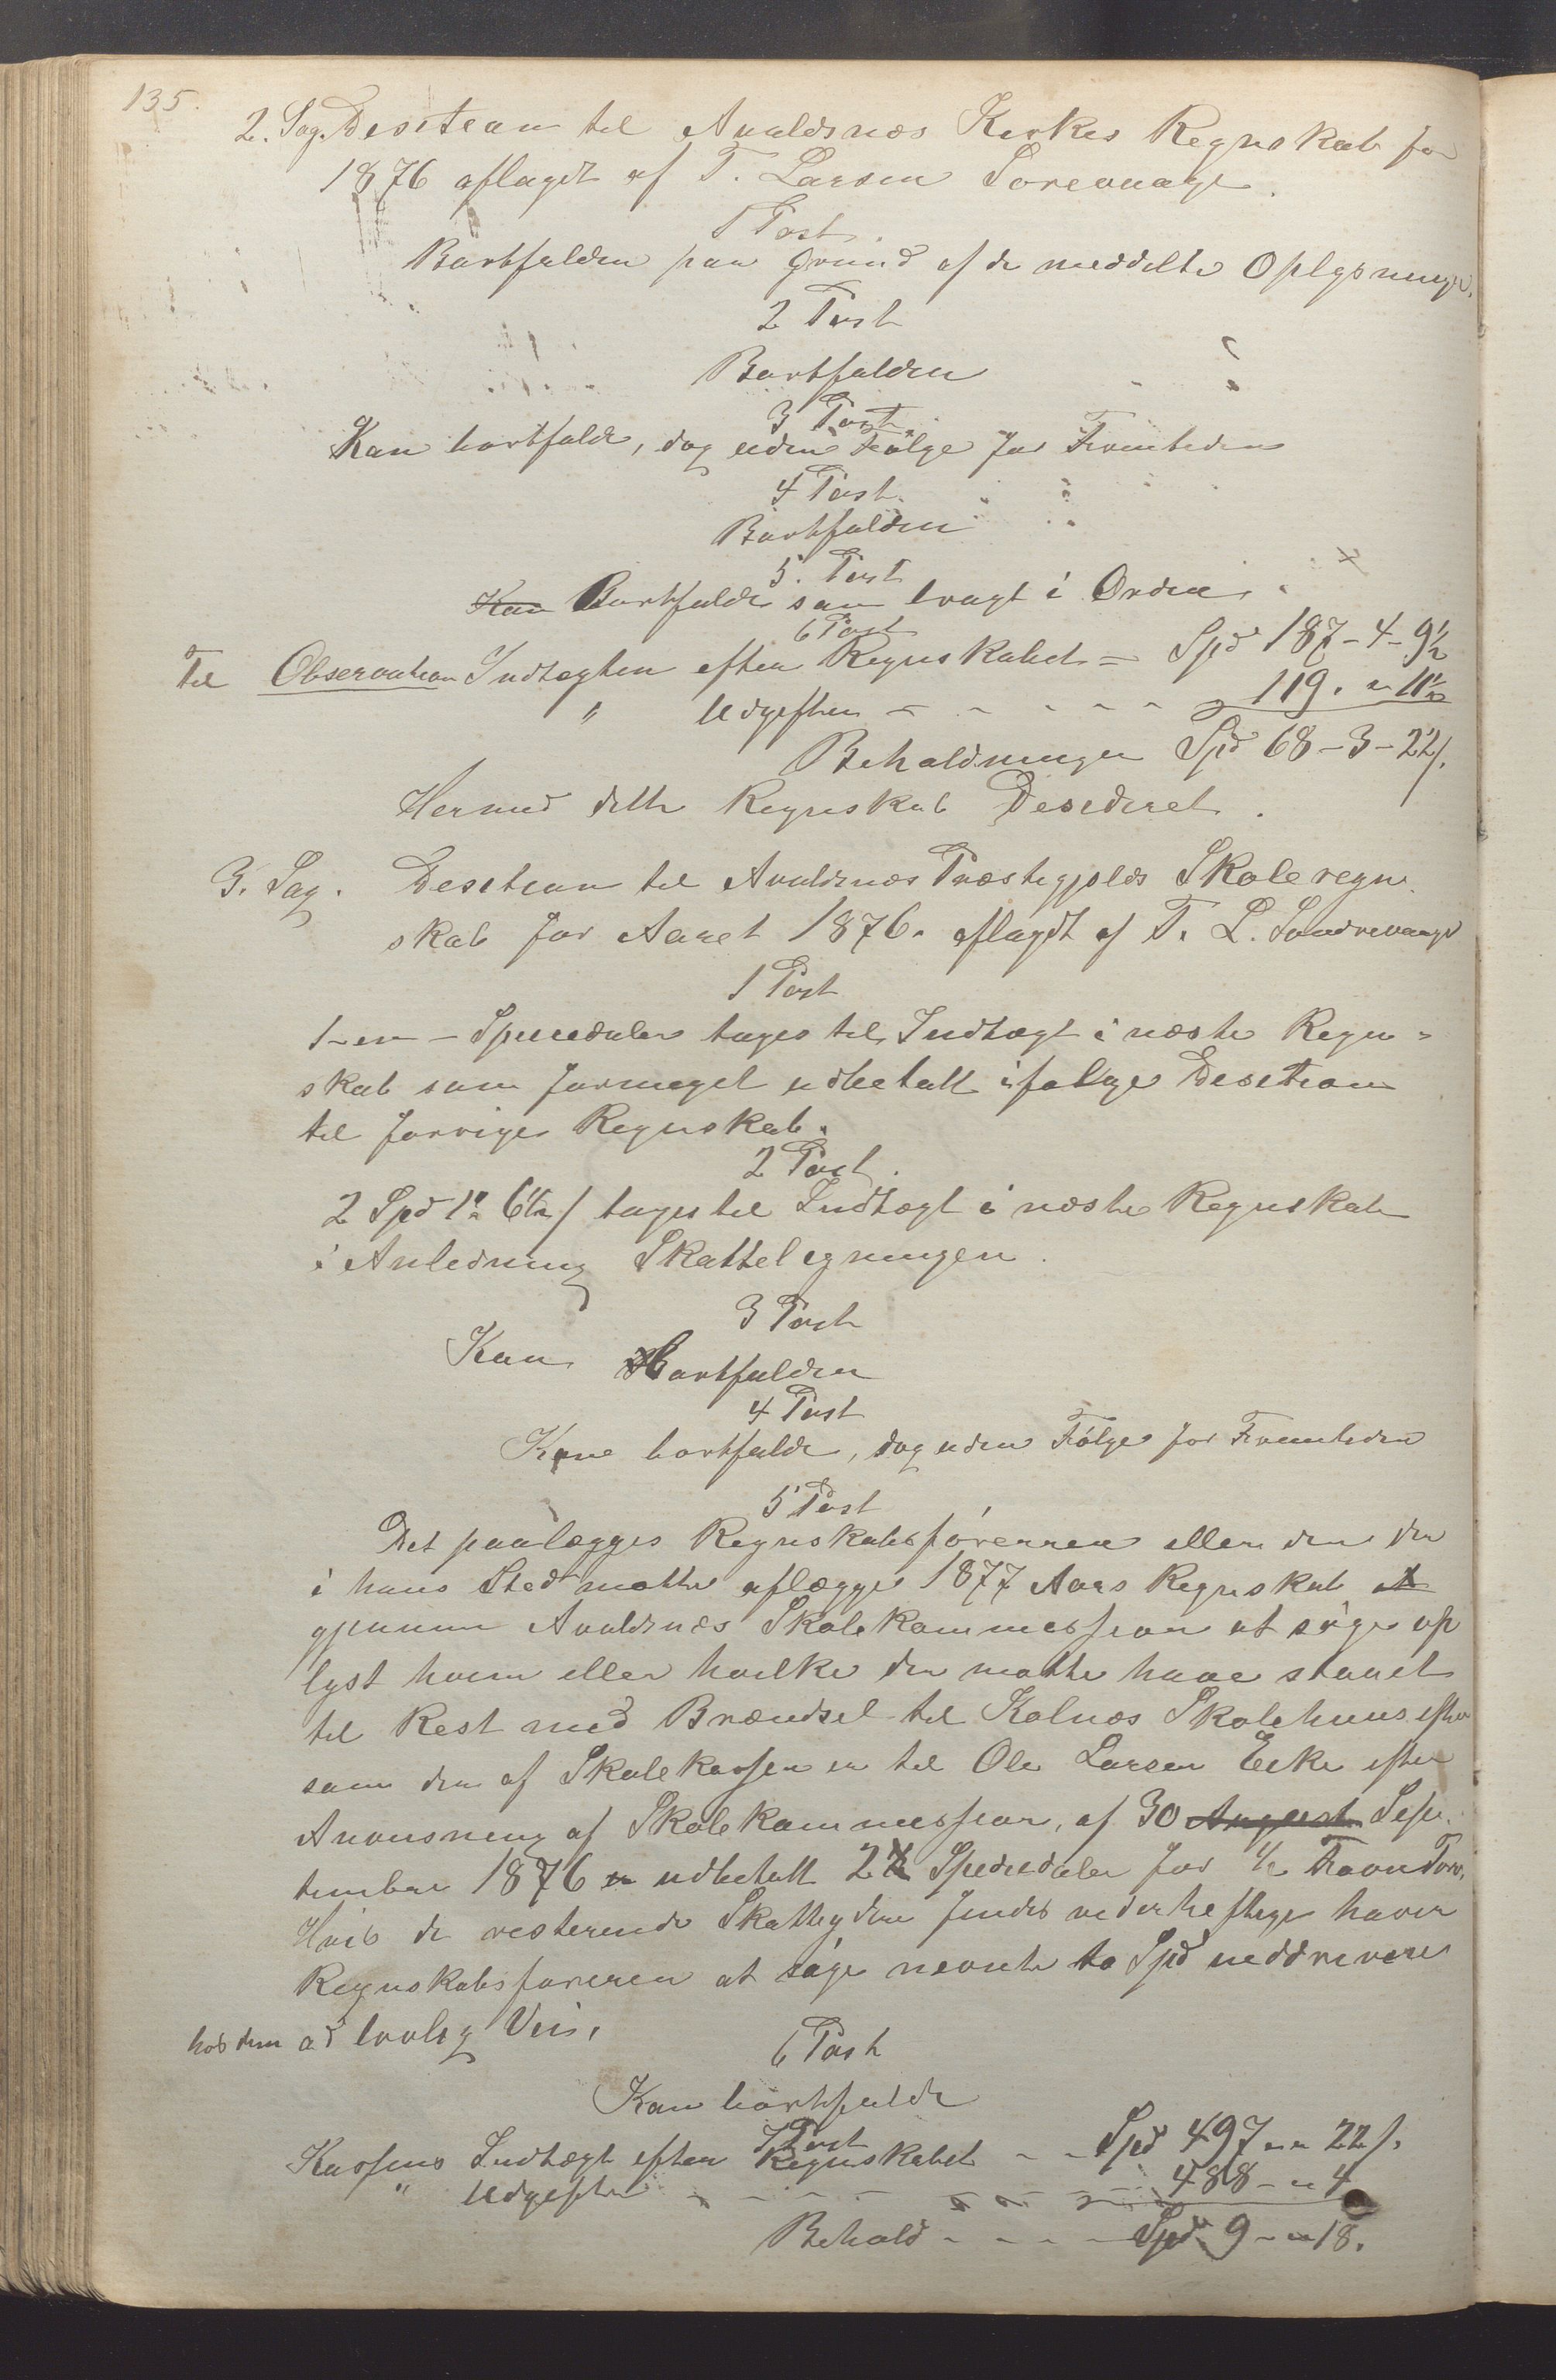 135.
2. Sag. Desition til Avaldsnæs Kirkes Regnskab for
1876 aflagdt af T. Larsen
1 Post.
Bortfalden paa Grund af de meddelte Oplysninger.
2 Post
Bortfalden
3 Post.
Kan bortfalde, dog uden Følge for Fremtiden
4 Post.
Bortfalden
5. Post
Kan Bortfalde som bragt i Orden.
6 Post
Til Observation Indtægten efter Regnskabet = Spd 187-4-9½
" Udgiften - - - - - 119. " 11½
Beholdningen Spd 68-3-22 s.
Hermed dette Regnskab Desideret.
3. Sag. Desition til Avaldsnæs Præstegjelds Skoleregn-
skab for Aaret 1876. aflagdt af T. L.
1 Post
1-en-Speciedaler tages til Indtægt i næste Regn-
skab som formeget udbetalt ifølge Desition
til forrige Regnskab.
2 Post.
2 Spd 1 " 6½ s tages til Indtægt i næste Regnskab
i Anledning Skatteligningen.
3 Post
Kan Bortfalden
4 Post
Kan bortfalde, dog uden Følge for Fremtiden
5 Post
Det paalægges Regnskabsføreren eller den der
i hans Sted matte aflægge 1877 Aars Regnskab at
gjennem Avaldsnæs Skolekommission at søge op
lyst hvem eller hvilke der matte have staaet
til Rest med Brændsel til Kolnæs Skolehuus efter
som den af Skolekassen er til Ole Larsen Eike efter
Anvisning af Skolekommission, af 30 August Sep-
tember 1876 er udbetalt 2 Speciedaler for ½ Favn Torv.
Hvis de resterende Skatteydere findes vederheftige haver
Regnskabsføreren at søge nevnte to Spd inddrevere
hos dem ad lovlig Veis.
6 Post
Kan bortfalde
7 Post
Kassens Indtægt efter Regnskabet - - Spd 497 " " 22 s.
" Udgifter - - - - - - 488 - " 4
Behold - - - - Spd 9 - " 18.